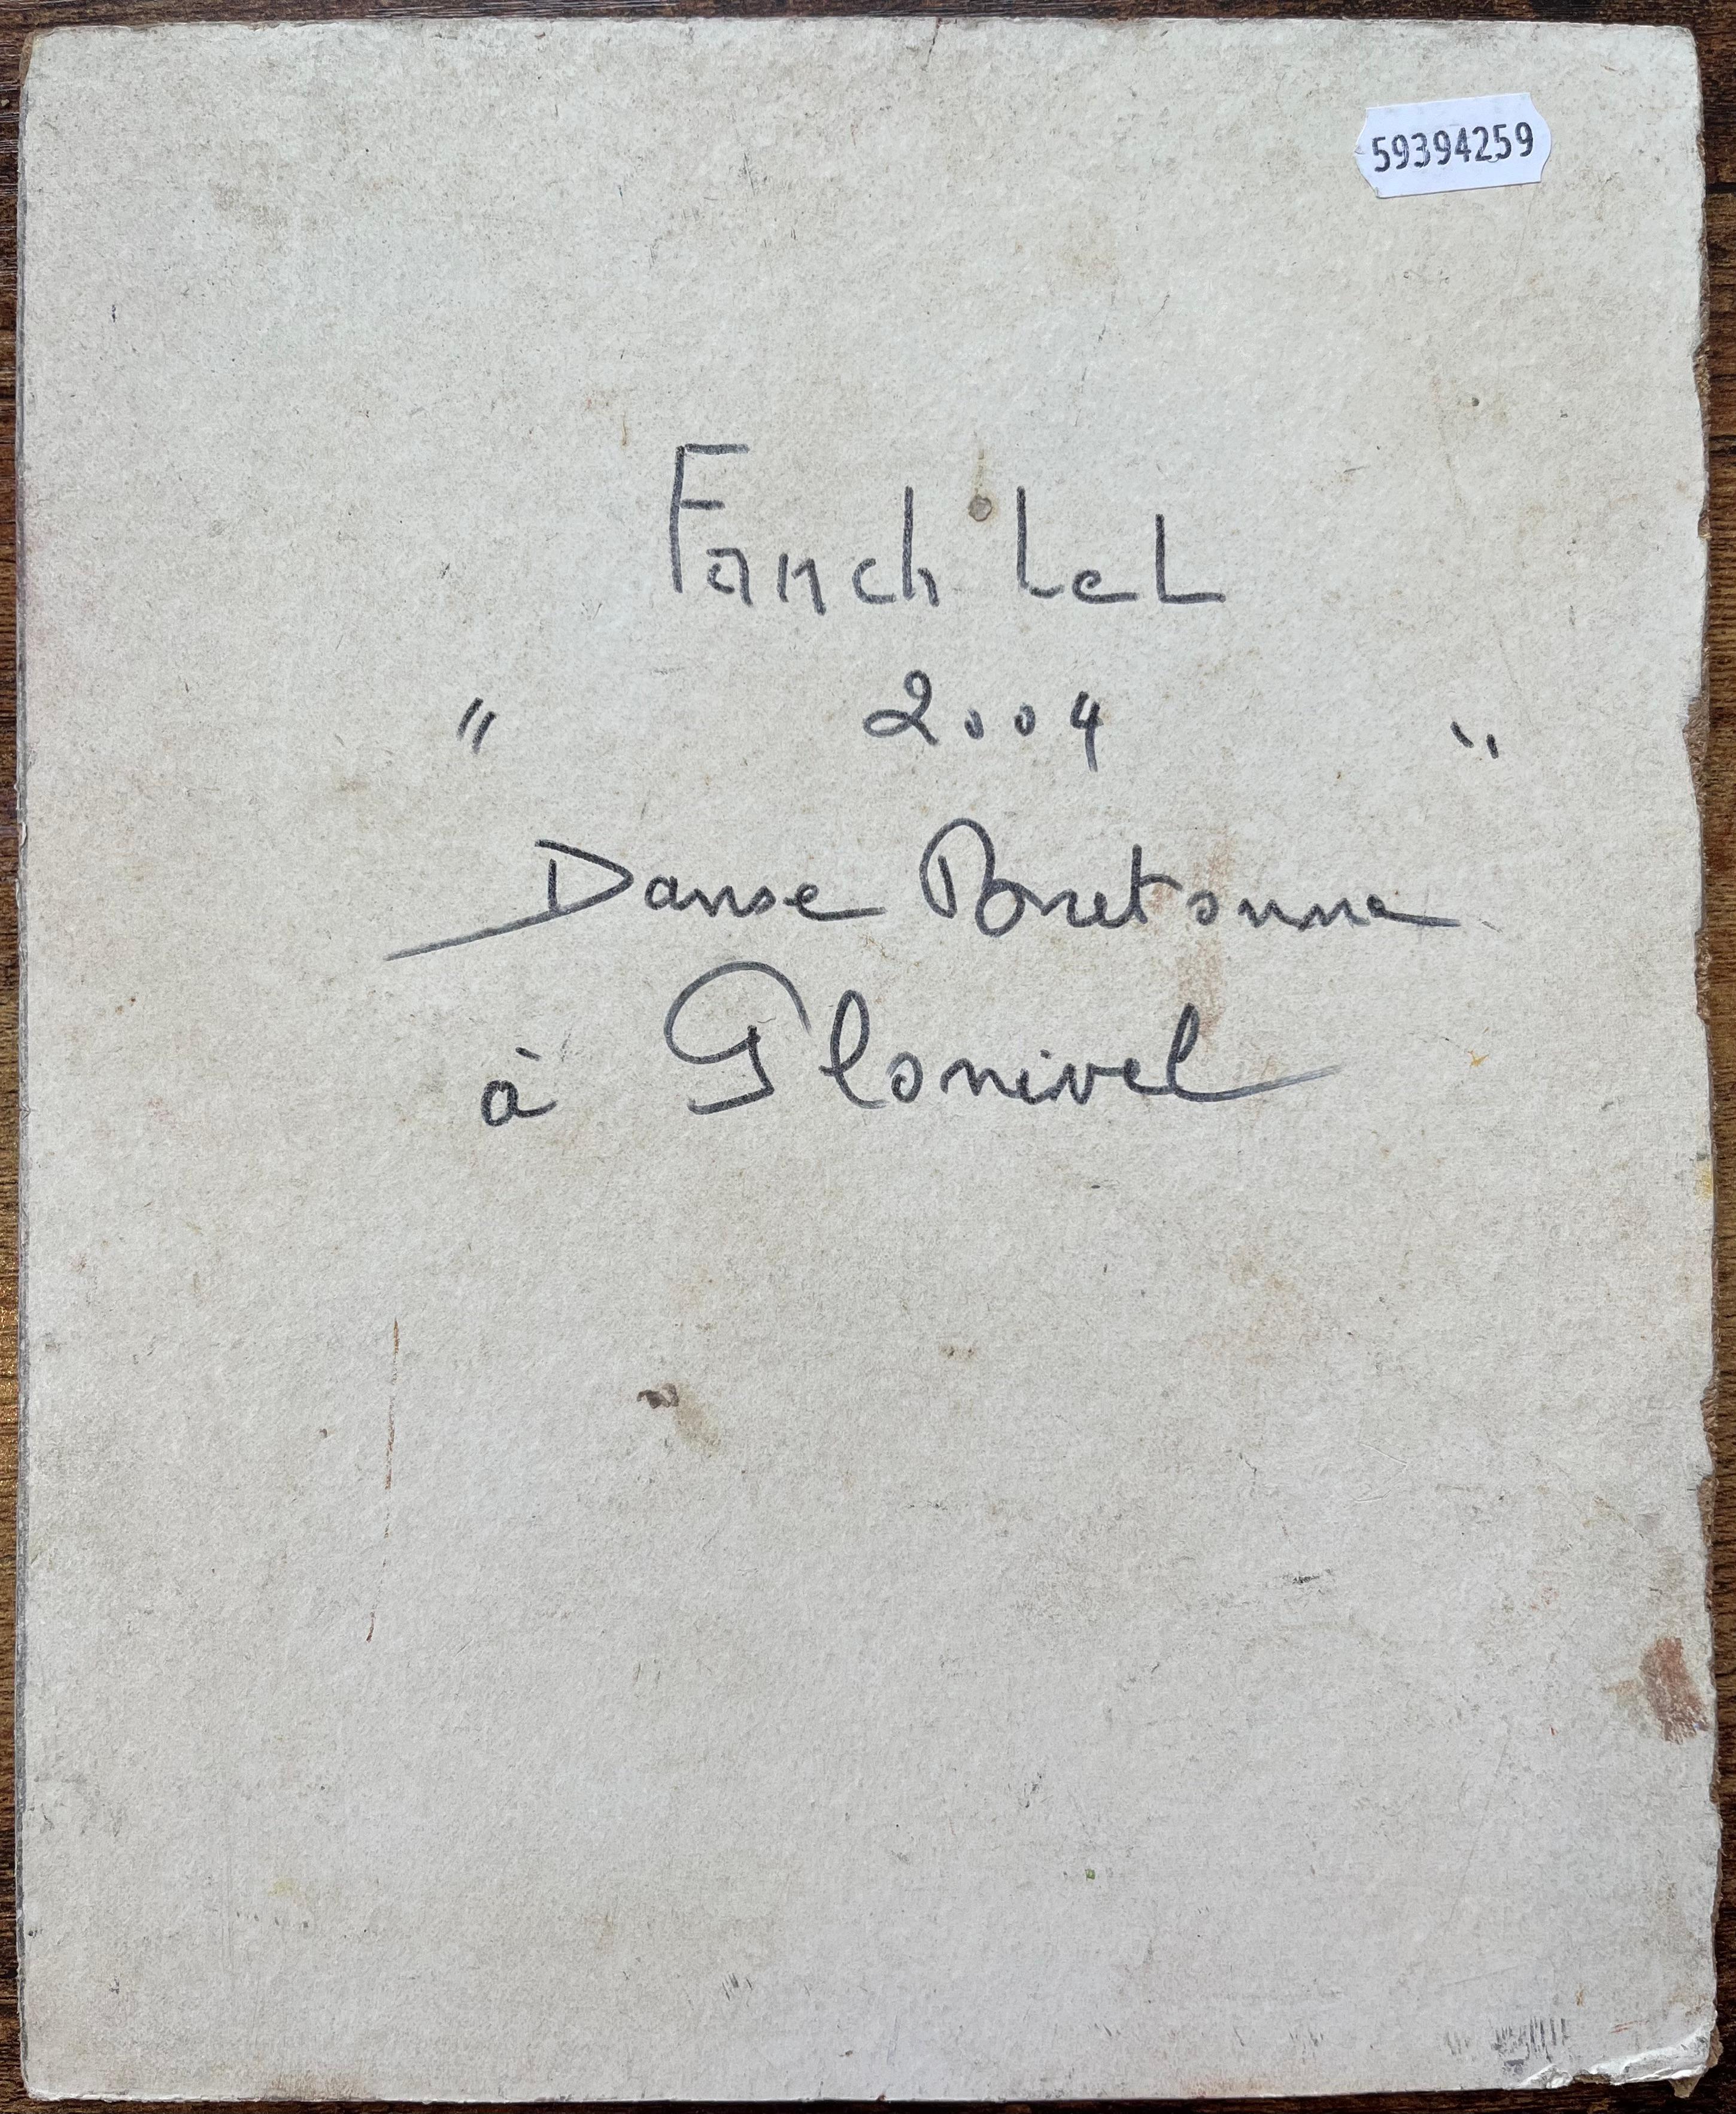 59394259
Fanch Lel
" 2004 "
Danse Bretonne
à Glonivel